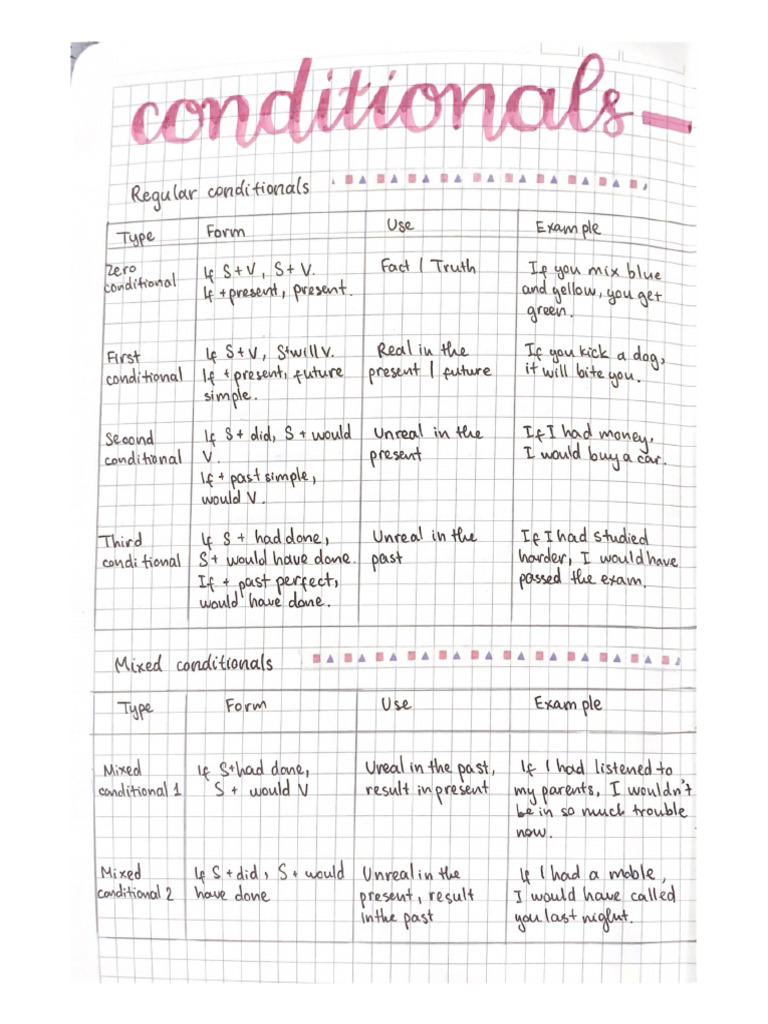 conditionals
Regular conditionals
Type Form Use Example
Zero
conditional
If S+V, S+V.
If +present, present.
Fact / Truth
If you mix blue
and yellow, you get
green.
First
conditional
If S+V, S+will V.
If +present, future
simple.
Real in the
present / future
If you kick a dog,
it will bite you.
Second
conditional
If S+ did, S+ would
V.
If + past simple,
would V.
Unreal in the
present
If I had money,
I would buy a car.
Third
conditional
If S + had done,
S+ would have done.
If + past perfect,
would have done.
Unreal in the
past
If I had studied
harder, I would have
passed the exam.
Mixed conditionals
Type Form Use Example
Mixed
conditional 1
If S+had done,
S + would V
Ureal in the past,
result in present
If I had listened to
my parents, I wouldn't
be in so much trouble
now.
Mixed
conditional 2
If S +did, S+ would
have done
Unreal in the
present, result
in the past
If I had a moble,
I would have called
you last night.